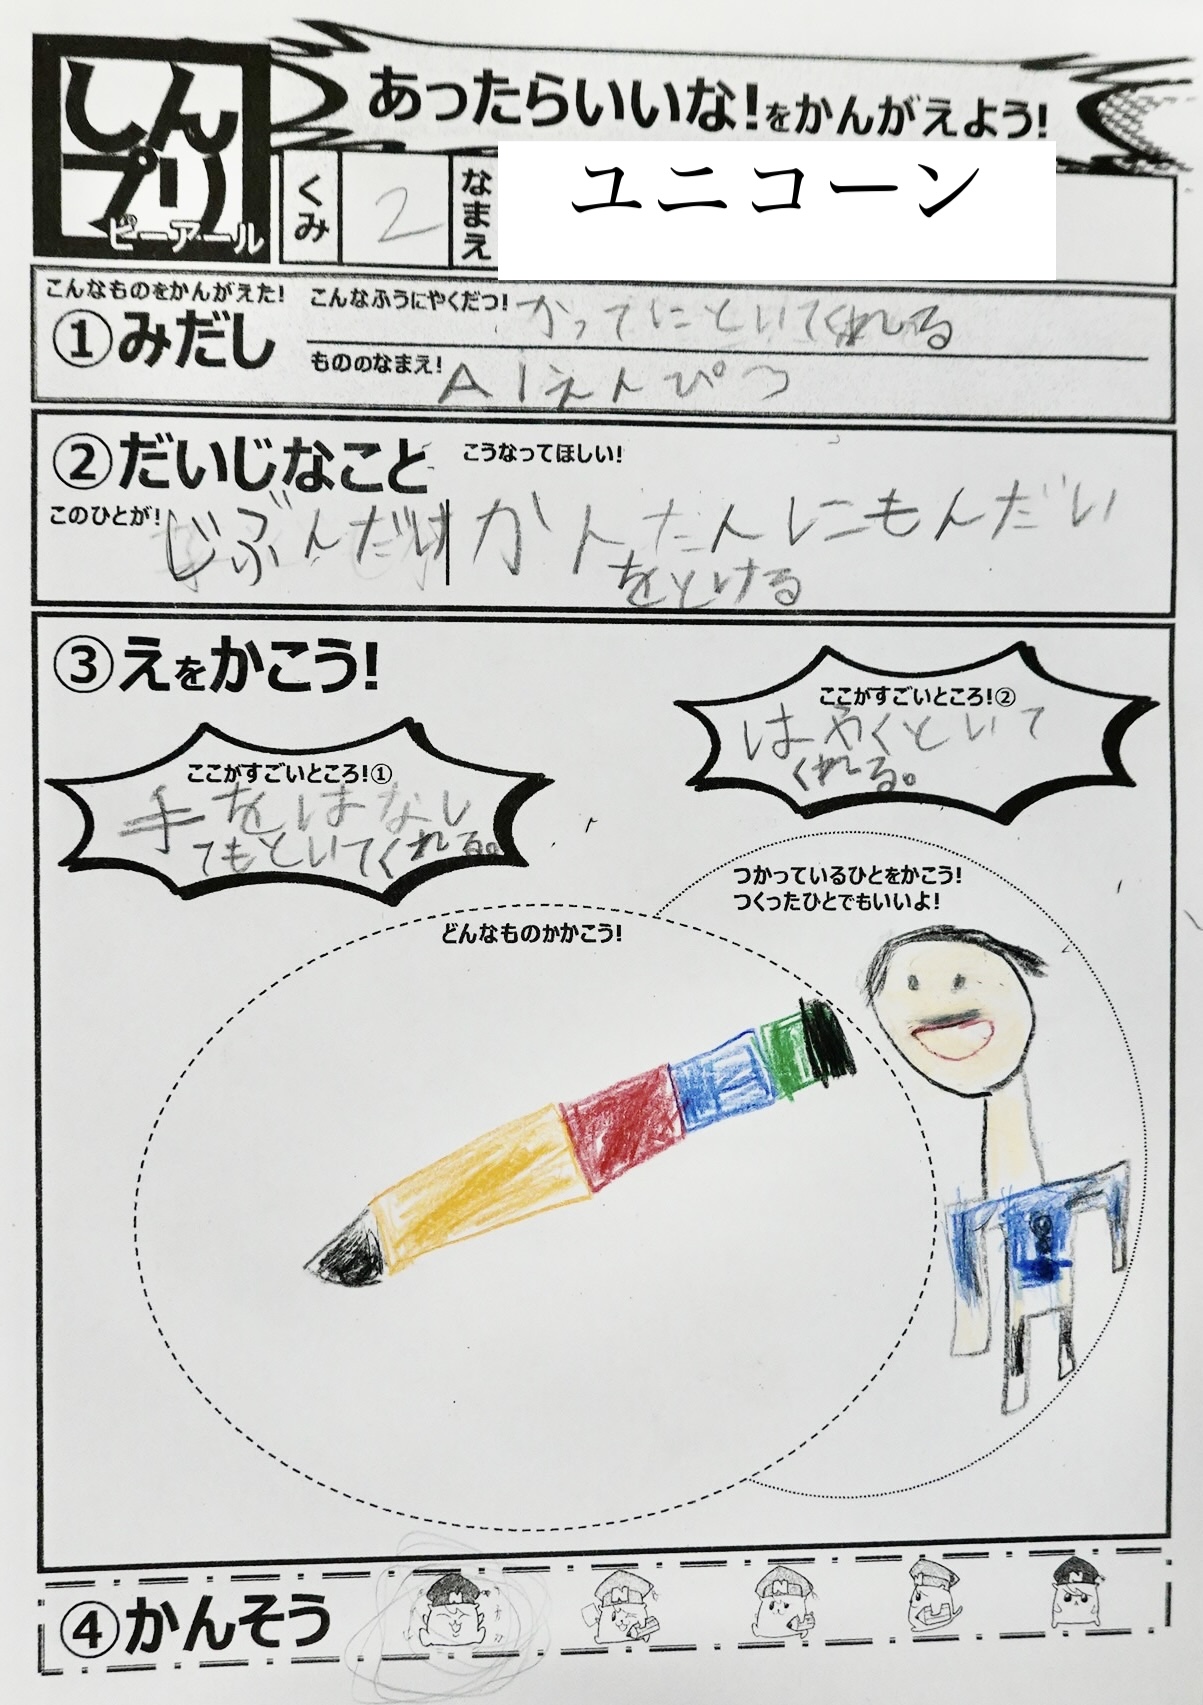 しん
プリ
ピーアール
あったらいいな!をかんがえよう!
くみ
2
なまえ
ユニコーン
こんなものをかんがえた!
①みだし
こんなふうにやくだつ!
かってにといてくれる
もののなまえ!
AIえんぴつ
②だいじなこと
こうなってほしい!
このひとが!
じぶんだけ
かんたんにもんだい
をとける
③えをかこう!
ここがすごいところ!①
手をはなし
てもといてくれる。
ここがすごいところ!②
はやくといて
くれる。
つかっているひとをかこう!
つくったひとでもいいよ!
どんなものかかこう!
④かんそう
N
N
N
N